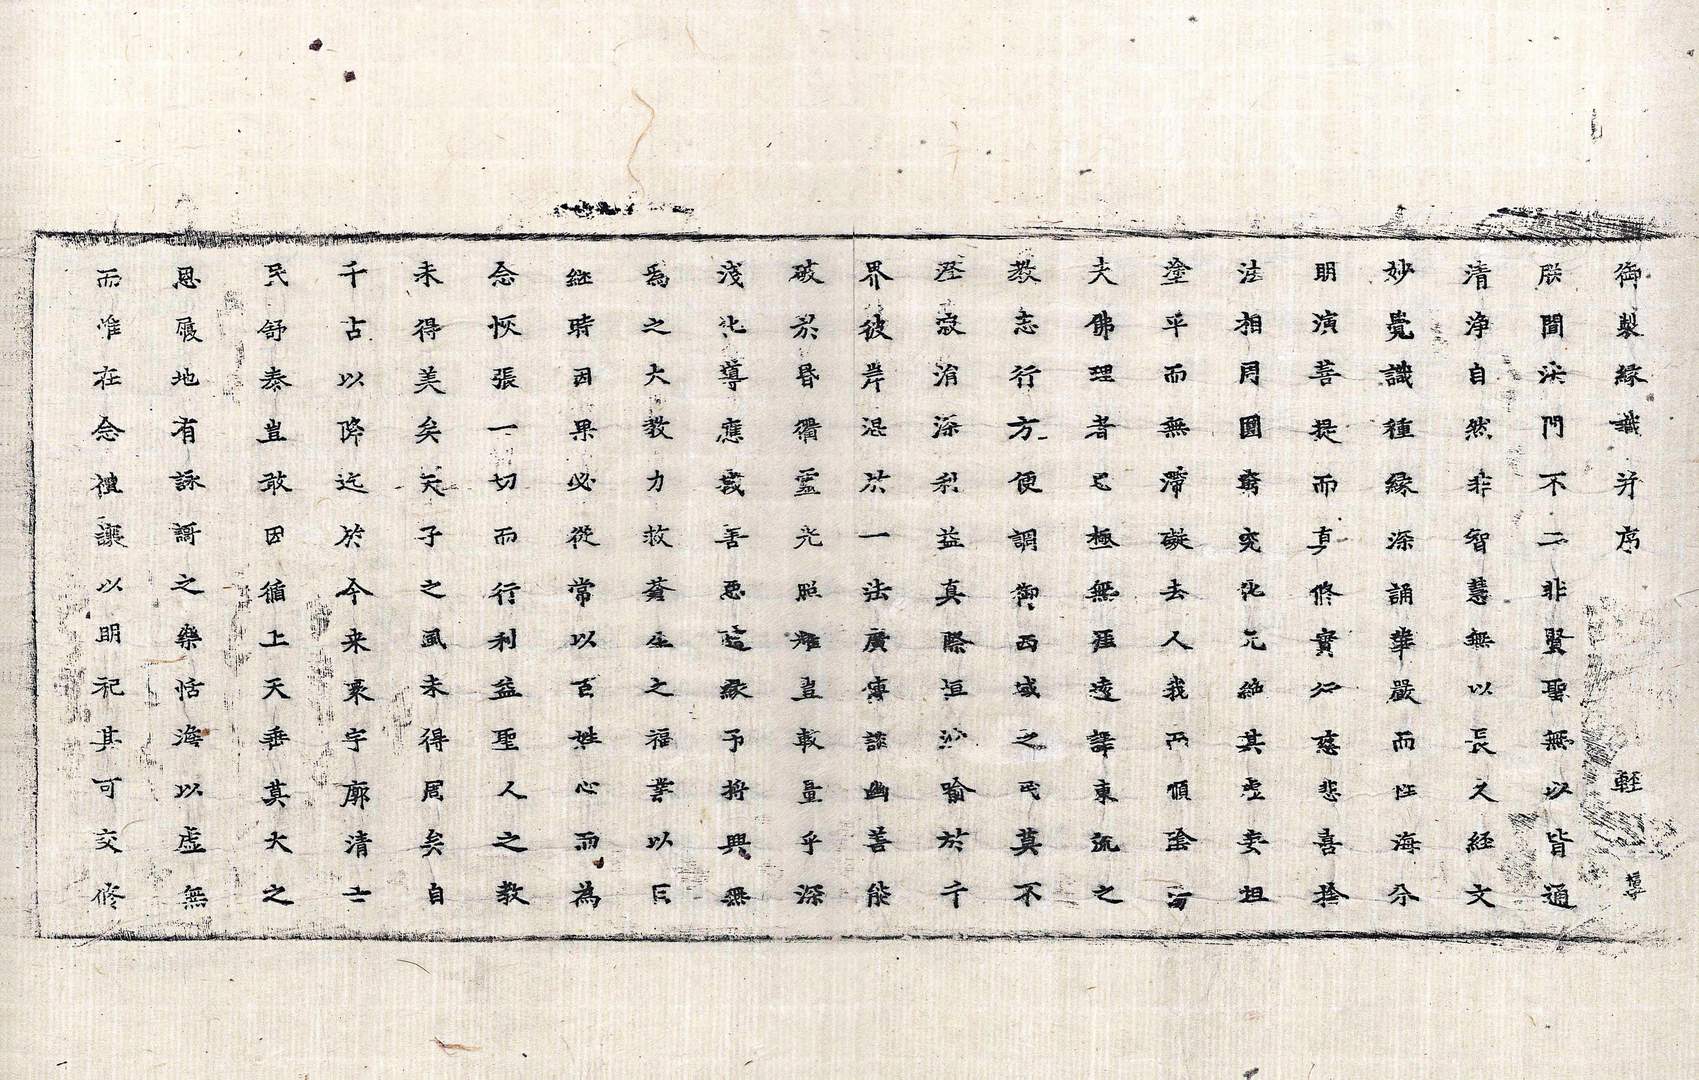 御製緣識并序 輕
朕聞法門不二非賢聖無以皆通
清淨自然非智慧無以長久經文
妙覺識種緣深誦華嚴而性海分
明演菩提而真修實行慈悲喜捨
法相周圓窮究化元絶其虛妄坦
塗平而無滯礙去人我
夫佛理者已極無涯遠譯東流之
教志行方便調御西域之民莫不
澄寂消深利益真際恒沙喻於千
界彼岸混於一法廣傳談幽善能
破於昏衢靈光照耀豈載量乎深
淺化導應裁善惡隨緣予將興無
為之大教力救蒼生之福業以日
継時因果必從常以百姓心而為
念恢張一切而行利益聖人之教
未得美矣天子之風未得周矣自
千古以降迄於今来寰宇廓清士
民舒泰豈敢因循上天垂莫大之
恩履地有詠謌之樂恬澹以虛無
而惟在念禮讓以明祀其可交修